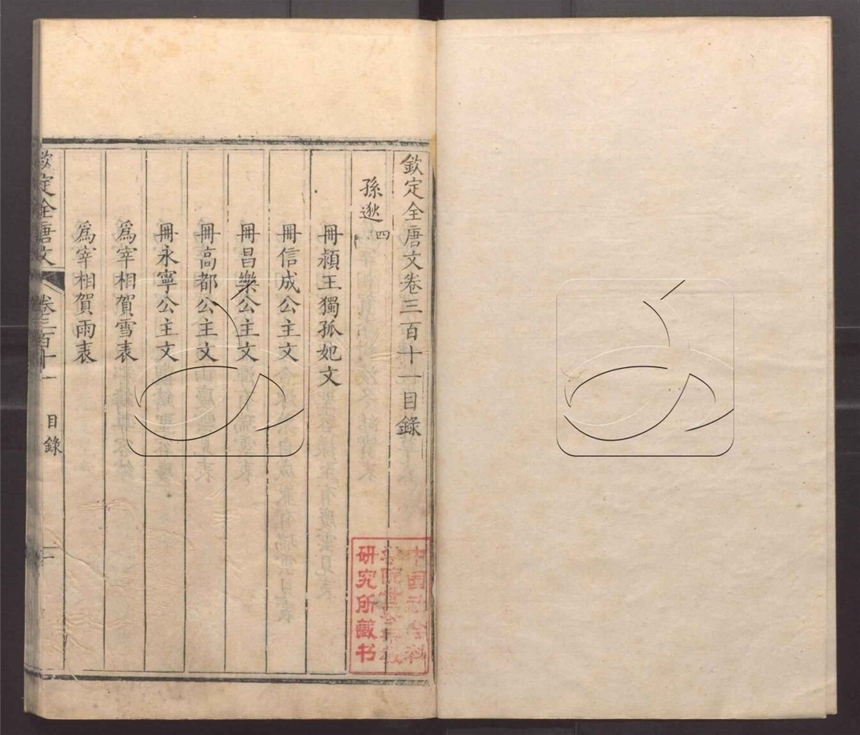 欽定全唐文卷三百十一目錄
孫逖四
冊潁王獨孤妃文
冊信成公主文
冊昌樂公主文
冊高都公主文
冊永寧公主文
為宰相賀雪表
為宰相賀雨表
欽定全唐文
卷三百十一
目錄
一
研究所藏书